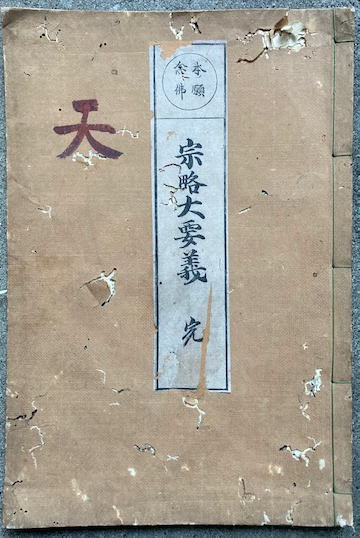 本願
念佛
宗略大要義 完
天